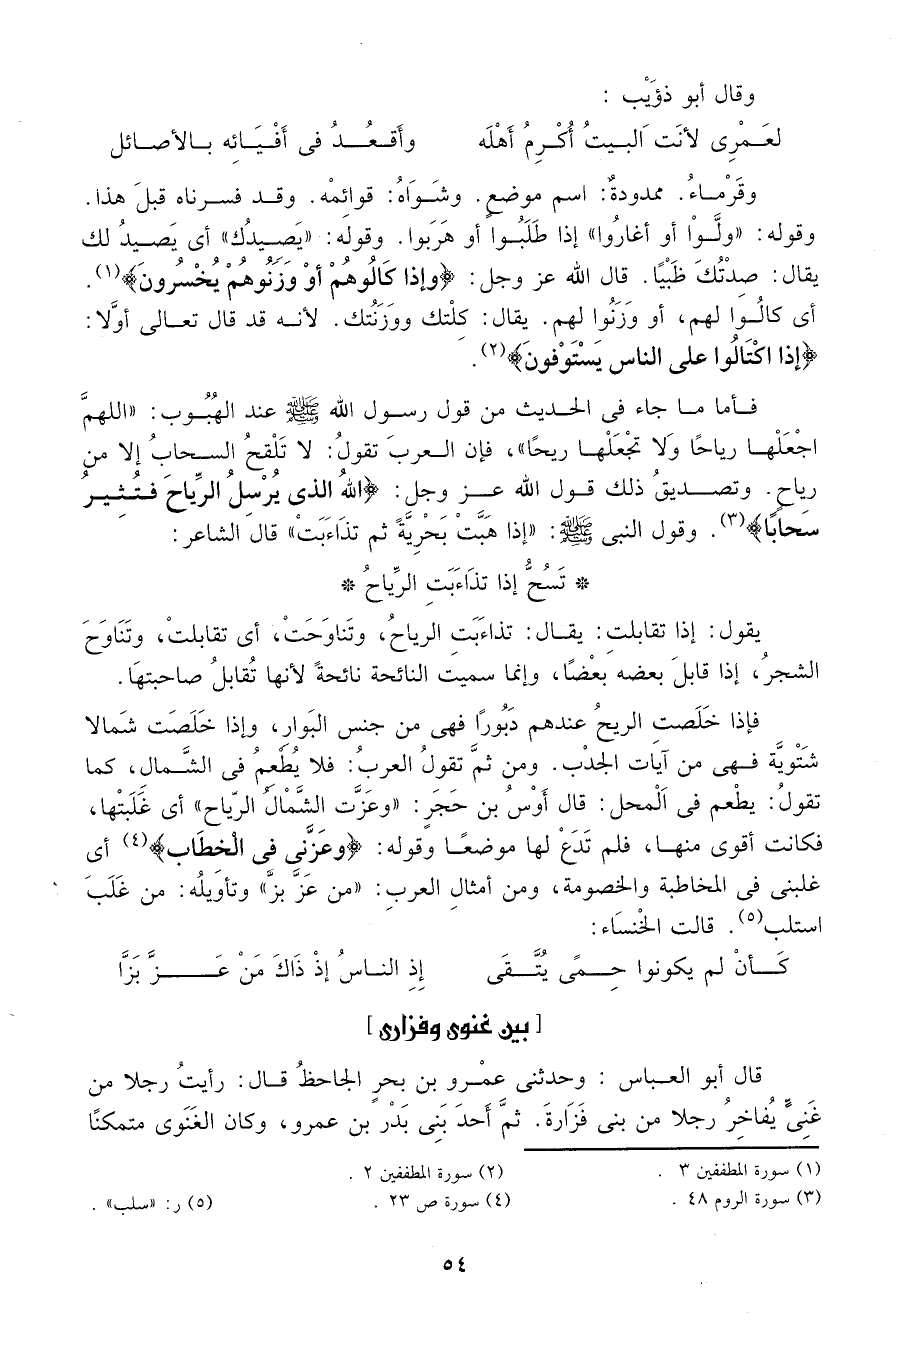 وقال أبو ذؤَيْب :
لعَمْرِى لأنَت اَلبيتُ أُكْرِمُ أهْلَه    وأَقعُدُ فى أَفْيَائه بالأصائل
وقَرْماءُ. ممدودةٌ: اسم موضعٍ. وشَوَاهُ: قوائمُه. وقد فسرناه قبلَ هذا.
وقوله: «ولَّوْا أو أغارُوا» إذا طَلَبُوا أو هَرَبوا. وقوله: «يَصيدُك» أى يَصيدُ لك
يقال: صدتُكَ ظَبْيًا. قال الله عز وجل: ﴿وإذا كَالُوهُمْ أوْ وَزَنُوهُمْ يُخْسرونَ﴾(١).
أى كالُوا لهم، أو وَزَنُوا لهم. يقال: كلْتك ووَزَنْتك. لأنه قد قال تعالى أولًا:
﴿إذا اكْتَالُوا على الناس يَسْتَوْفونَ﴾(٢).
فأما ما جاء فى الحديث من قول رسول الله ﷺ عند الهُبُوب: «اللهمَّ
اجْعَلْها رياحًا وَلَا تجْعَلْها ريحًا»، فإن العربَ تقولُ: لا تَلْقحُ السحابُ إلا من
رياحٍ. وتصديقُ ذلك قول الله عز وجل: ﴿اللهُ الذى يُرْسلُ الرِّياحَ فَتُثيرُ
سَحابًا﴾(٣). وقول النبى ﷺ: «إذا هَبَّتْ بَحْرِيَّةً ثم تذاءَبَتْ» قال الشاعر:
* تَسُحُّ إذا تذاءَبَتِ الرِّياحُ *
يقول: إذا تقابلت: يقال: تذاءَبَت الرياحُ، وتَناوَحَتْ، أى تقابلتْ، وتَنَاوَحَ
الشجرُ، إذا قابلَ بعضه بعْضًا، وإنما سميت النائحة نائحةً لأنها تُقابلُ صاحبتهَا.
فإذا خَلَصت الريحُ عندهم دَبُوراً فهى من جنس البَوار، وإذا خَلَصَت شمالا
شَتْوِيَّة فهى من آيات الجدْب. ومن ثمَّ تقولُ العربُ: فلا يُطْعمُ فى الشَّمال، كما
تقولُ: يطْعم فى اَلمحل: قال أوْسُ بن حَجَرٍ: «وعَزَّت الشَّمْالُ الرِّياح» أى غَلَبَتْها،
فكانت أقوى منها، فلم تَدَعْ لها موضعًا وقوله: ﴿وعَزَّنى فى الْخطَاب﴾(٤) أى
غلبنى فى المخاطبة والخصومة، ومن أمثال العربِ: «من عَزَّ بزَّ» وتأويلُه: من غَلَبَ
استلب(٥). قالت الخْنسَاء:
كَأنْ لم يكونوا حِمىً يُتَّقَى    إذِ الناسُ إذْ ذَاكَ مَنْ عَزَّ بَزَّا
[بين غنوى وفزارى]
قال أبو العباس : وحدثنى عمْرو بن بحرٍ الجاحظُ قال: رأيتُ رجلا من
غَنِىٍّ يُفاخرُ رجلا من بنى فَزَارةَ. ثمَّ أحدَ بَنِى بَدْر بن عمرو، وكان الغَنَوى متمكنًا
(١) سورة المطففين ٣ .    (٢) سورة المطففين ٢ .
(٣) سورة الروم ٤٨ .    (٤) سورة ص ٢٣ .    (٥) ر: «سلب» .
٥٤